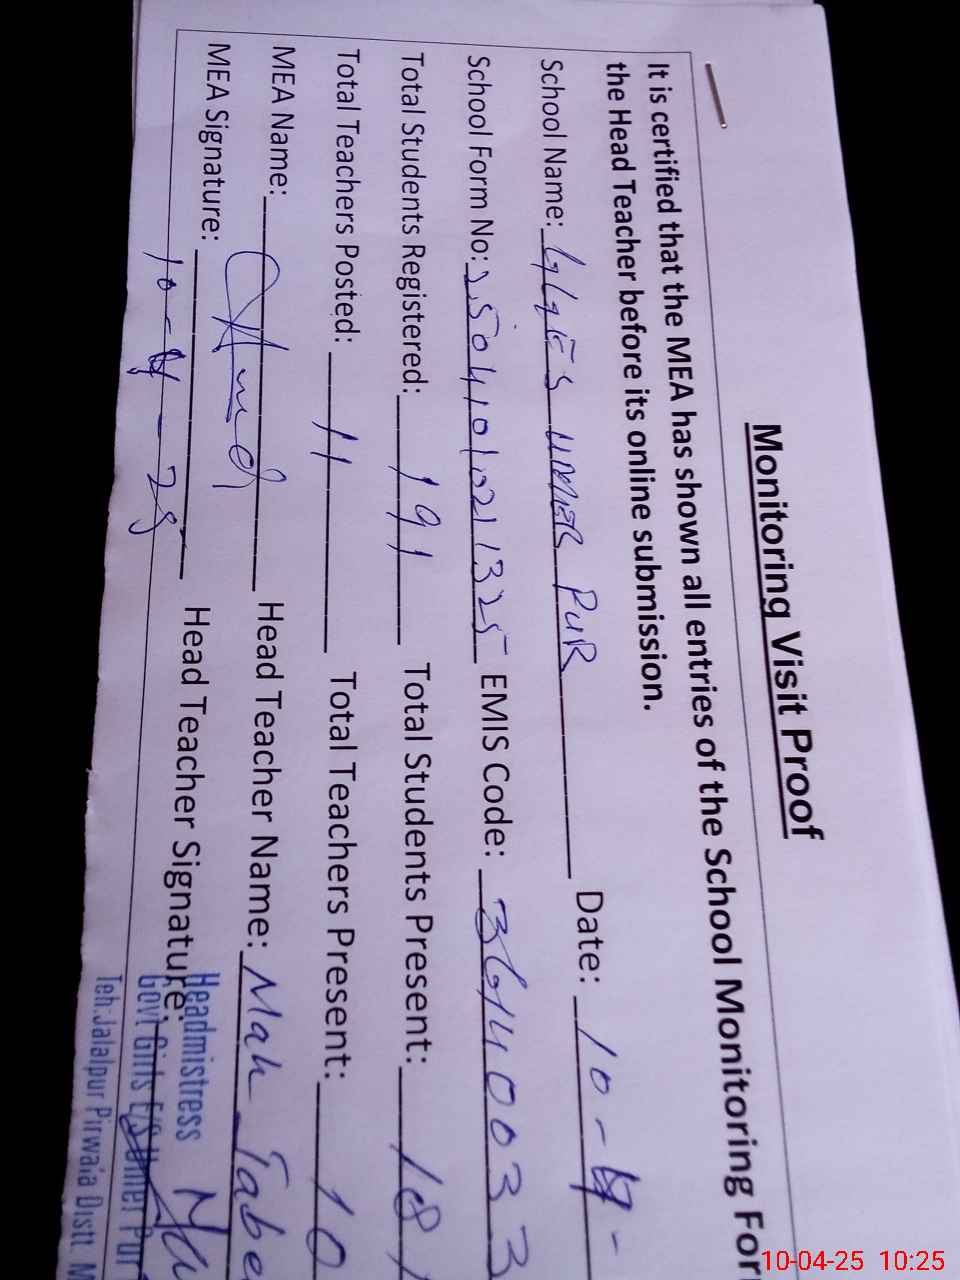 Monitoring Visit Proof
It is certified that the MEA has shown all entries of the School Monitoring For
the Head Teacher before its online submission.
School Name: GGES UMER PUR Date: 10-4-
School Form No: 250410102132 EMIS Code: 36140033
Total Students Registered: 191 Total Students Present: 18
Total Teachers Posted: 11 Total Teachers Present: 10
MEA Name: Head Teacher Name: Mah Tabe
MEA Signature: Head Teacher Signature:
10-4-25
Headmistress
Govt Girls E/S Umer Pur
Teh:Jalalpur Pirwala Distt. M
10-04-25 10:25